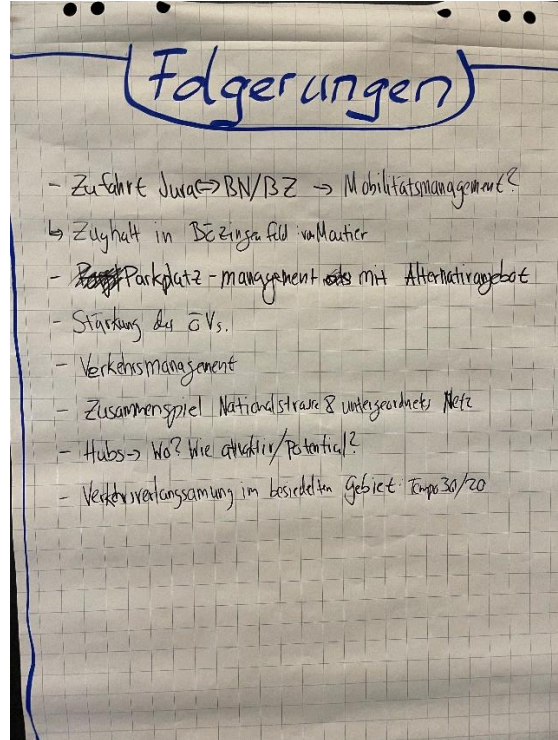 Folgerungen
- Zufahrt Jura<=>BN/BZ -> Mobilitätsmanagement?
↳ Zughalt in Bözingenfeld von Moutier
- Parkplatz-management mit Alternativangebot
- Stärkung des ÖVs.
- Verkehrsmanagement
- Zusammenspiel Nationalstrasse & untergeordnetes Netz
- Hubs -> Wo? Wie attraktiv/Potential?
- Verkehrsverlangsamung im besiedelten Gebiet: Tempo 30/20